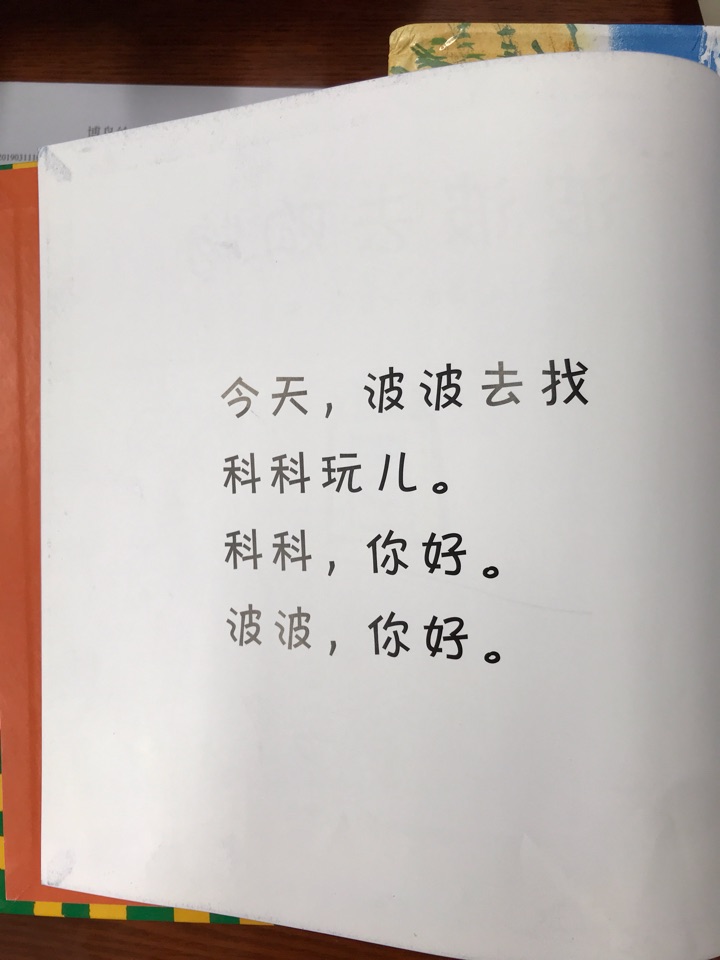 今天，波波去找
科科玩儿。
科科，你好。
波波，你好。